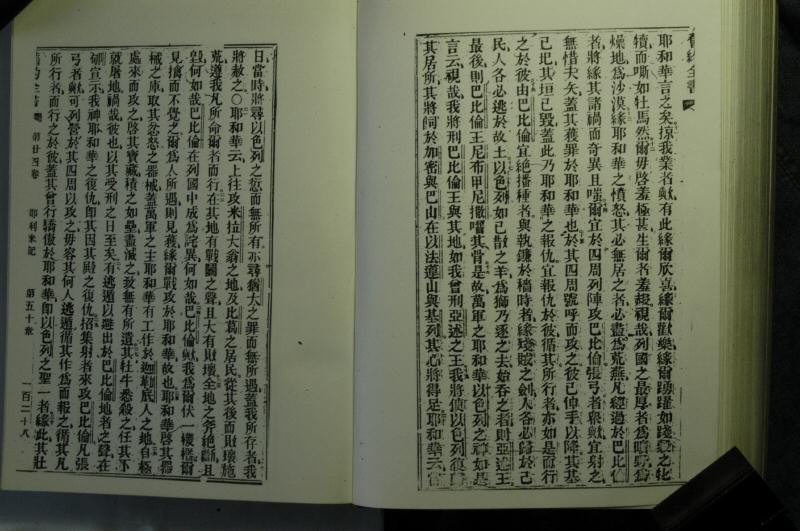 舊約全書
耶和華言之矣掠我業者歟有此緣爾欣喜緣爾歡樂緣爾踴躍如踐之牝
犢而嘶如牡馬然爾毋啓羞極甚生爾者羞赧視哉列國之最厚者爲曠野爲
燥地爲沙漠緣耶和華之憤怒其必無居之者必盡爲荒蕪凡經過於巴比倫
者將緣其諸禍而奇異且嗤爾宜於四周列陣攻巴比倫張弓者衆歟宜射之
無惜夫矢蓋其獲罪於耶和華也於其四周號呼而攻之彼已伸手以降其基
已圮其垣已毀蓋此乃耶和華之報仇宜報仇於彼循其所行者亦如是而行
之於彼由巴比倫宜絶播種者與執鐮於穡時者緣殘賊之劍人各必歸於己
民人各必逃於故土以色列如已散之羊爲獅乃逐之去始吞之者則亞述王
最後則巴比倫王尼布甲尼撒囓其骨是故萬軍之耶和華以色列之神如是
言云視哉我將刑巴比倫王與其地如我曾刑亞述之王我將以色列復
其居所其將伺於加密與巴山在以法蓮山與基列其心將得足耶和華云
日當時將尋以色列之愆而無所有亦尋猶大之罪而無所遇蓋我所存者我
將赦之〇耶和華云上往攻米拉大翁之地及比葛之居民從其後而敗壞施
荒遵我凡所命爾者而行在其地有戰鬬之聲且大有敗壞全地之斧絶斷且
毀何如哉巴比倫在列國中成爲詫異何如哉巴比倫歟我爲爾伏一機檻爾
見擒而不覺之爾爲人所遇則見獲緣爾戰攻於耶和華故也耶和華啓其器
械之庫取其忿怒之器械蓋萬軍之主耶和華有工作於迦勒底人之地自極
處來而攻之啓其寶藏積之如壘盡滅之致無有所遺其牡牛悉殺之任其下
就屠地禍哉彼也以其受刑之日至矣有逃遁以出於巴比倫地者之聲在
郇宣示我神耶和華之復仇即其因其殿之復仇招集射者來攻巴比倫凡張
弓者歟可列營於其四周以攻之毋容其何人逃遁循其作爲而報之循其凡
所行者而行之於彼蓋其曾行驕傲於耶和華即以色列之聖一者緣此其壯
舊約全書 第廿四卷 耶利米記 第五十章 一百二十八